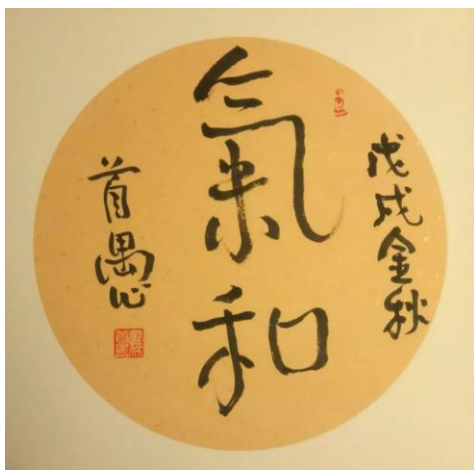 戊戌金秋
氣和
首愚